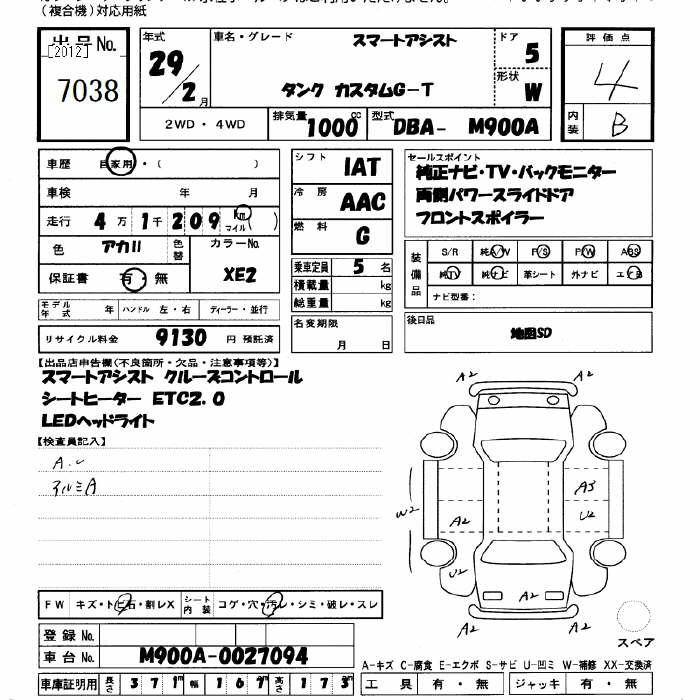 (複合機)対応用紙
出品No.
[2012]
7038
年式
29/2月
車名・グレード
スマートアシスト
タンク カスタムG-T
ドア
5
形状
W
評価点
4
内装
B
2WD・4WD
排気量
1000 cc
型式
DBA- M900A
車歴 自家用・( )
車検 年 月
走行 4万1千209 Km マイル ( )
色 アカII 色替 カラーNo. XE2
保証書 有・無
シフト IAT
冷房 AAC
燃料 G
乗車定員 5 名
積載量 kg
総重量 kg
セールスポイント
純正ナビ・TV・バックモニター
両側パワースライドドア
フロントスポイラー
装備品
S/R 純A/W P/S P/W ABS
純TV 純ナビ 革シート 外ナビ エアB
ナビ型番:
モデル年式 年 ハンドル 左・右 ディーラー・並行
リサイクル料金 9130 円 預託済
名変期限
月 日
後日品
地図SD
【出品店申告欄(不良箇所・欠品・注意事項等)】
スマートアシスト クルーズコントロール
シートヒーター ETC2.0
LEDヘッドライト
【検査員記入】
アルミA
A2 A2
W2 A2 A3
U2
U2 A2
A2 A2
スペア
FW キズ・トビ石・割レX シート内装 コゲ・穴・汚レ・シミ・破レ・スレ
登録No.
車台No. M900A-0027094
車庫証明用 長さ 3 7 1m 幅 1 6 7m 高さ 1 7 3m
A-キズ C-腐食 E-エクボ S-サビ U-凹ミ W-補修 XX-交換済
工具 有・無 ジャッキ 有・無